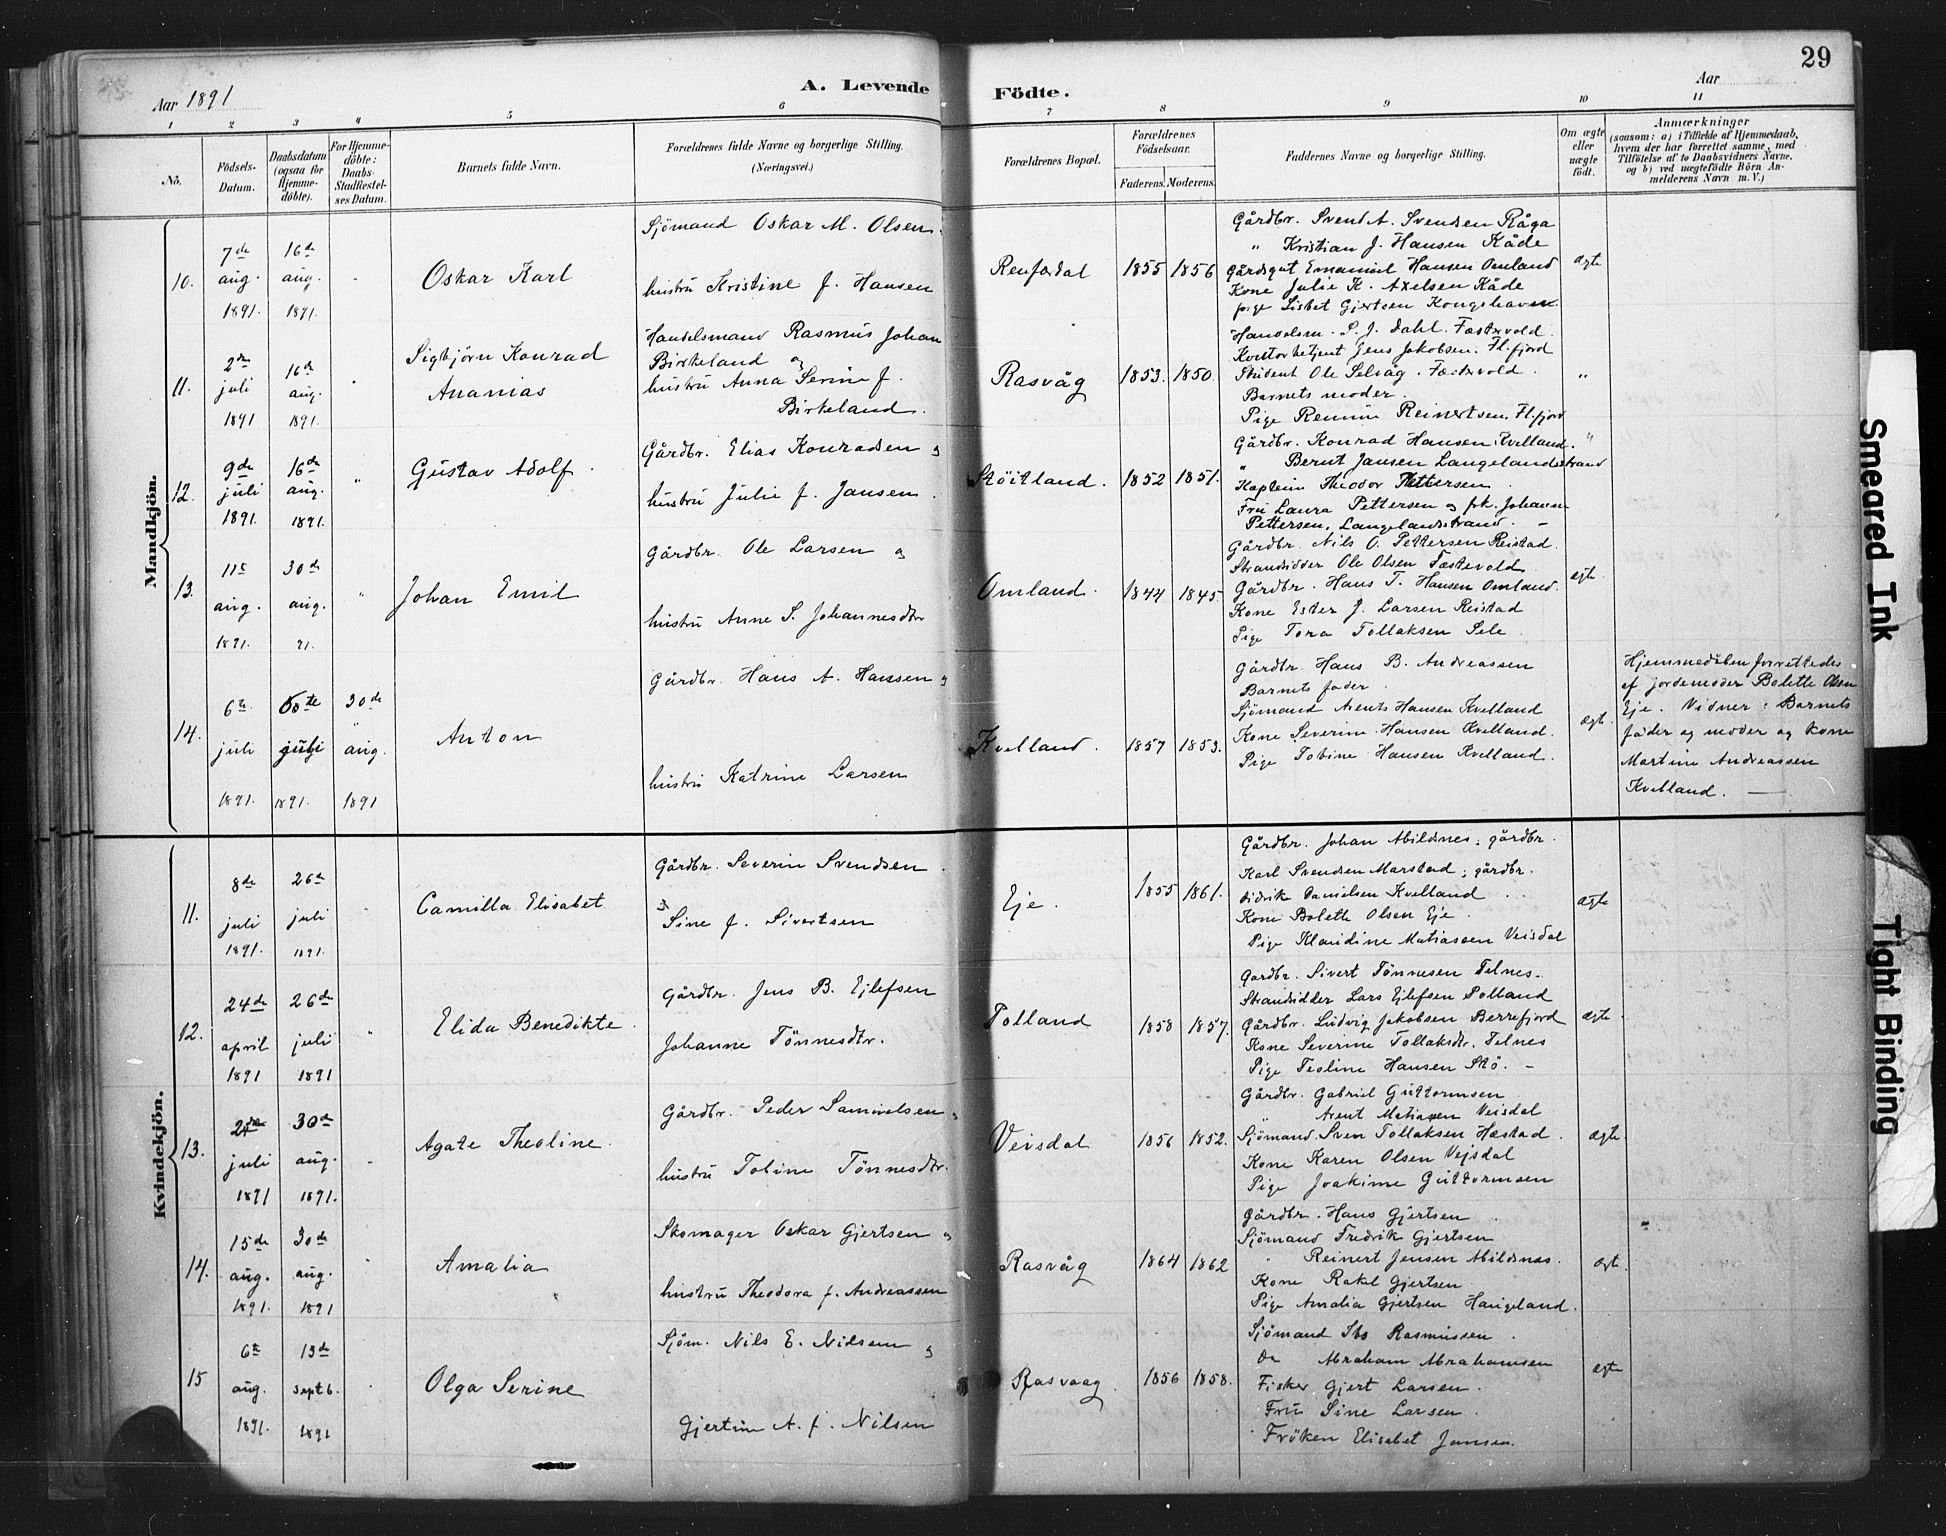 29
Aar 1891
A. Levende Födte.
Aar
1 2 3 4 5 6 7 8 9 10 11
No.
Födsels-Datum.
Daabsdatum (ogsaa for Hjemme-döbte).
For Hjemme-döbte: Daabs-Stadfæstel-ses Datum.
Barnets fulde Navn.
Forældrenes fulde Navne og borgerlige Stilling.
(Næringsvei.)
Forældrenes Bopæl.
Forældrenes Födselsaar.
Faderens. Moderens.
Faddernes Navne og borgerlige Stilling.
Om ægte eller uægte födt.
Anmærkninger
(saasom: a) i Tilfælde af Hjemmedaab,
hvem der har forrettet samme, med
Tilföielse af to Daabsvidners Navne,
og b) ved uægtefödte Börn An-
melderens Navn m. V.)
Mandkjön.
10.
7de aug. 1891.
16de aug. 1891.
Oskar Karl
Sjömand Oskar M. Olsen
hustru Kristine f. Hansen
Renfædal
1855 1856
Gårdbr. Svend A. Svendsen Råga
" Kristian J. Hansen Kåde
Gårdsgut Emanuel Hansen Omland
Kone Julie K. Axelsen Kåde
pige Lisbet Gjertsen Kongshavn
ægte
11.
2den juli 1891
16de aug. 1891.
Sigbjörn Konrad
Ananias
Handelsmand Rasmus Johan
Birkeland og
hustru Anna Serine f.
Birkeland.
Rasvåg
1853. 1850.
Handelsm. P. J. Dahl. Fæstevold.
Kontorbetjent Jens Jakobsen. Fl.fjord
Student Ole Selvåg. Fæstevold.
Barnets moder.
Pige Remine Reinertsen. Fl.fjord
"
12.
9de juli 1891.
16de aug. 1891.
Gustav Adolf.
Gårdbr. Elias Konradsen og
hustru Julie f. Jansen.
Stöitland.
1852 1851.
Gårdbr. Konrad Hansen Kvelland.
" Bernt Jansen Langelandsstrand
Kaptein Theodor Pettersen
Fru Laura Pettersen og frk. Johanne
Pettersen, Langelandsstrand. -
"
13.
11te aug. 1891.
30de aug. 91.
Johan Emil
Gårdbr. Ole Larsen og
hustru Anne S. Johannesdtr
Omland.
1844 1845.
Gårdbr. Nils O. Pettersen Reistad.
Strandsidder Ole Olsen Fæstevold.
Gårdbr. Hans T. Hansen Omland.
Kone Ester J. Larsen Reistad
Pige Tora Tollaksen Sele.
ægte.
14.
6te juli 1891.
juli 1891.
30de aug. 1891
Anton
Gårdbr. Hans A. Hansen og
hustru Katrine Larsen
Kvelland.
1857 1853.
Gårdbr. Hans B. Andreassen
Barnets fader.
Sjömand Arents Hansen Kvelland
Kone Severine Hansen Kvelland.
Pige Tobine Hansen Kvelland.
ægt.
Hjemmedåben forrettedes
af jordemoder Bolette Olsen
Eje. Vidner: Barnets
fader og moder og kone
Martine Andreassen
Kvelland. —
Kvindekjön.
11.
8de juli 1891.
26de juli 1891.
Camilla Elisabet
Gårdbr. Severin Svendsen
og
Sine f. Sivertsen
Eje.
1855 1861.
Gårdbr. Johan Abildsnes; gårdbr.
Karl Svendsen Marstad; gårdbr.
Didrik Danielsen Kvelland
Kone Bolette Olsen Eje
Pige Klaudine Matiassen Veisdal
ægte
12.
24de april 1891
26de juli 1891
Elida Benedikte.
Gårdbr. Jens B. Ejlefsen
Johanne Tönnesdtr.
Tolland
1858 1857.
Gardbr. Sivert Tönnesen Telnes.
Strandsidder Lars Ejlefsen Tolland
Gårdbr. Ludvig Jakobsen Berrefjord
Kone Severine Tollaksdtr. Telnes
Pige Teoline Hansen Stö. -
ægte.
13.
juli 1891
30de aug. 1891.
Agate Theoline.
Gårdbr. Peder Samuelsen og
hustru Tobine Tönnesdtr.
Veisdal
1856 1852.
Gårdbr. Gabriel Guttormsen
" Arent Matiasen Veisdal
Sjömand Sven Tollaksen Hæstad.
Kone Karen Olsen Vejsdal
Pige Joakime Guttormsen
ægte.
14.
15de aug. 1891.
30de aug. 1891
Amalia
Skomager Oskar Gjertsen og
hustru Theodora f. Andreassen
Rasvåg
1864 1862
Gårdbr. Hans Gjertsen
Sjömand Fredrik Gjertsen
" Reinert Jensen Abildsnæs.
Kone Rakel Gjertsen
Pige Amalia Gjertsen Haugeland.
ægt.
15
6te aug. 1891.
13de septb. 1891
Olga Serine
Sjöm. Nils E. Nilsen og
Gjertine A. f. Nilsen
Rasvaag.
1856 1858.
Sjömand Rasmussen.
Do Abraham Abrahamsen
Fisker Gjert Larsen.
Fru Sine Larsen.
Fröken Elisabet Jansen.
ægte
Smeared Ink
Tight Binding